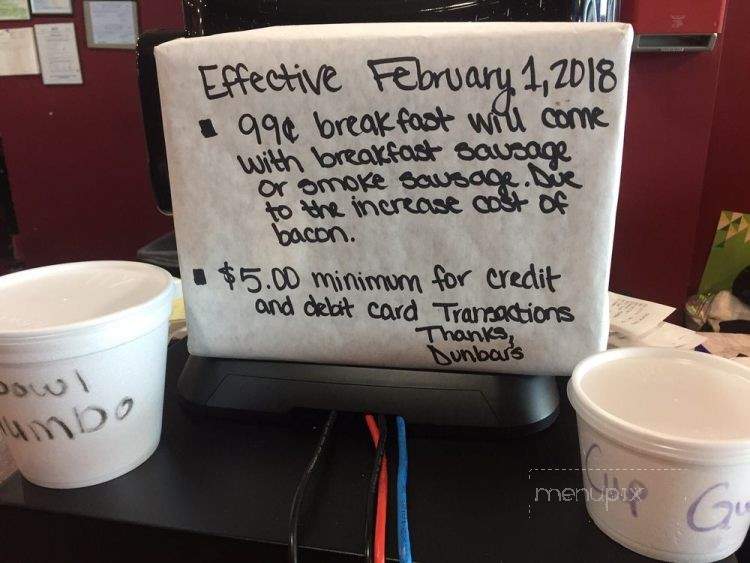 Effective February 1, 2018
■ 99¢ breakfast will come
with breakfast sausage
or smoke sausage. Due
to the increase cost of
bacon.
■ $5.00 minimum for credit
and debit card Transactions
Thanks,
Dunbar's
bowl
umbo
Cup
Gu
menupix